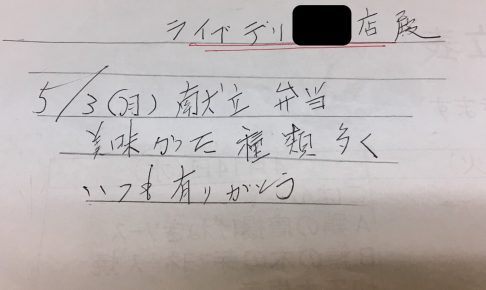 ライフデリ 店殿
5/3(月) 献立 弁当
美味かった 種類多く
いつも有りがとう